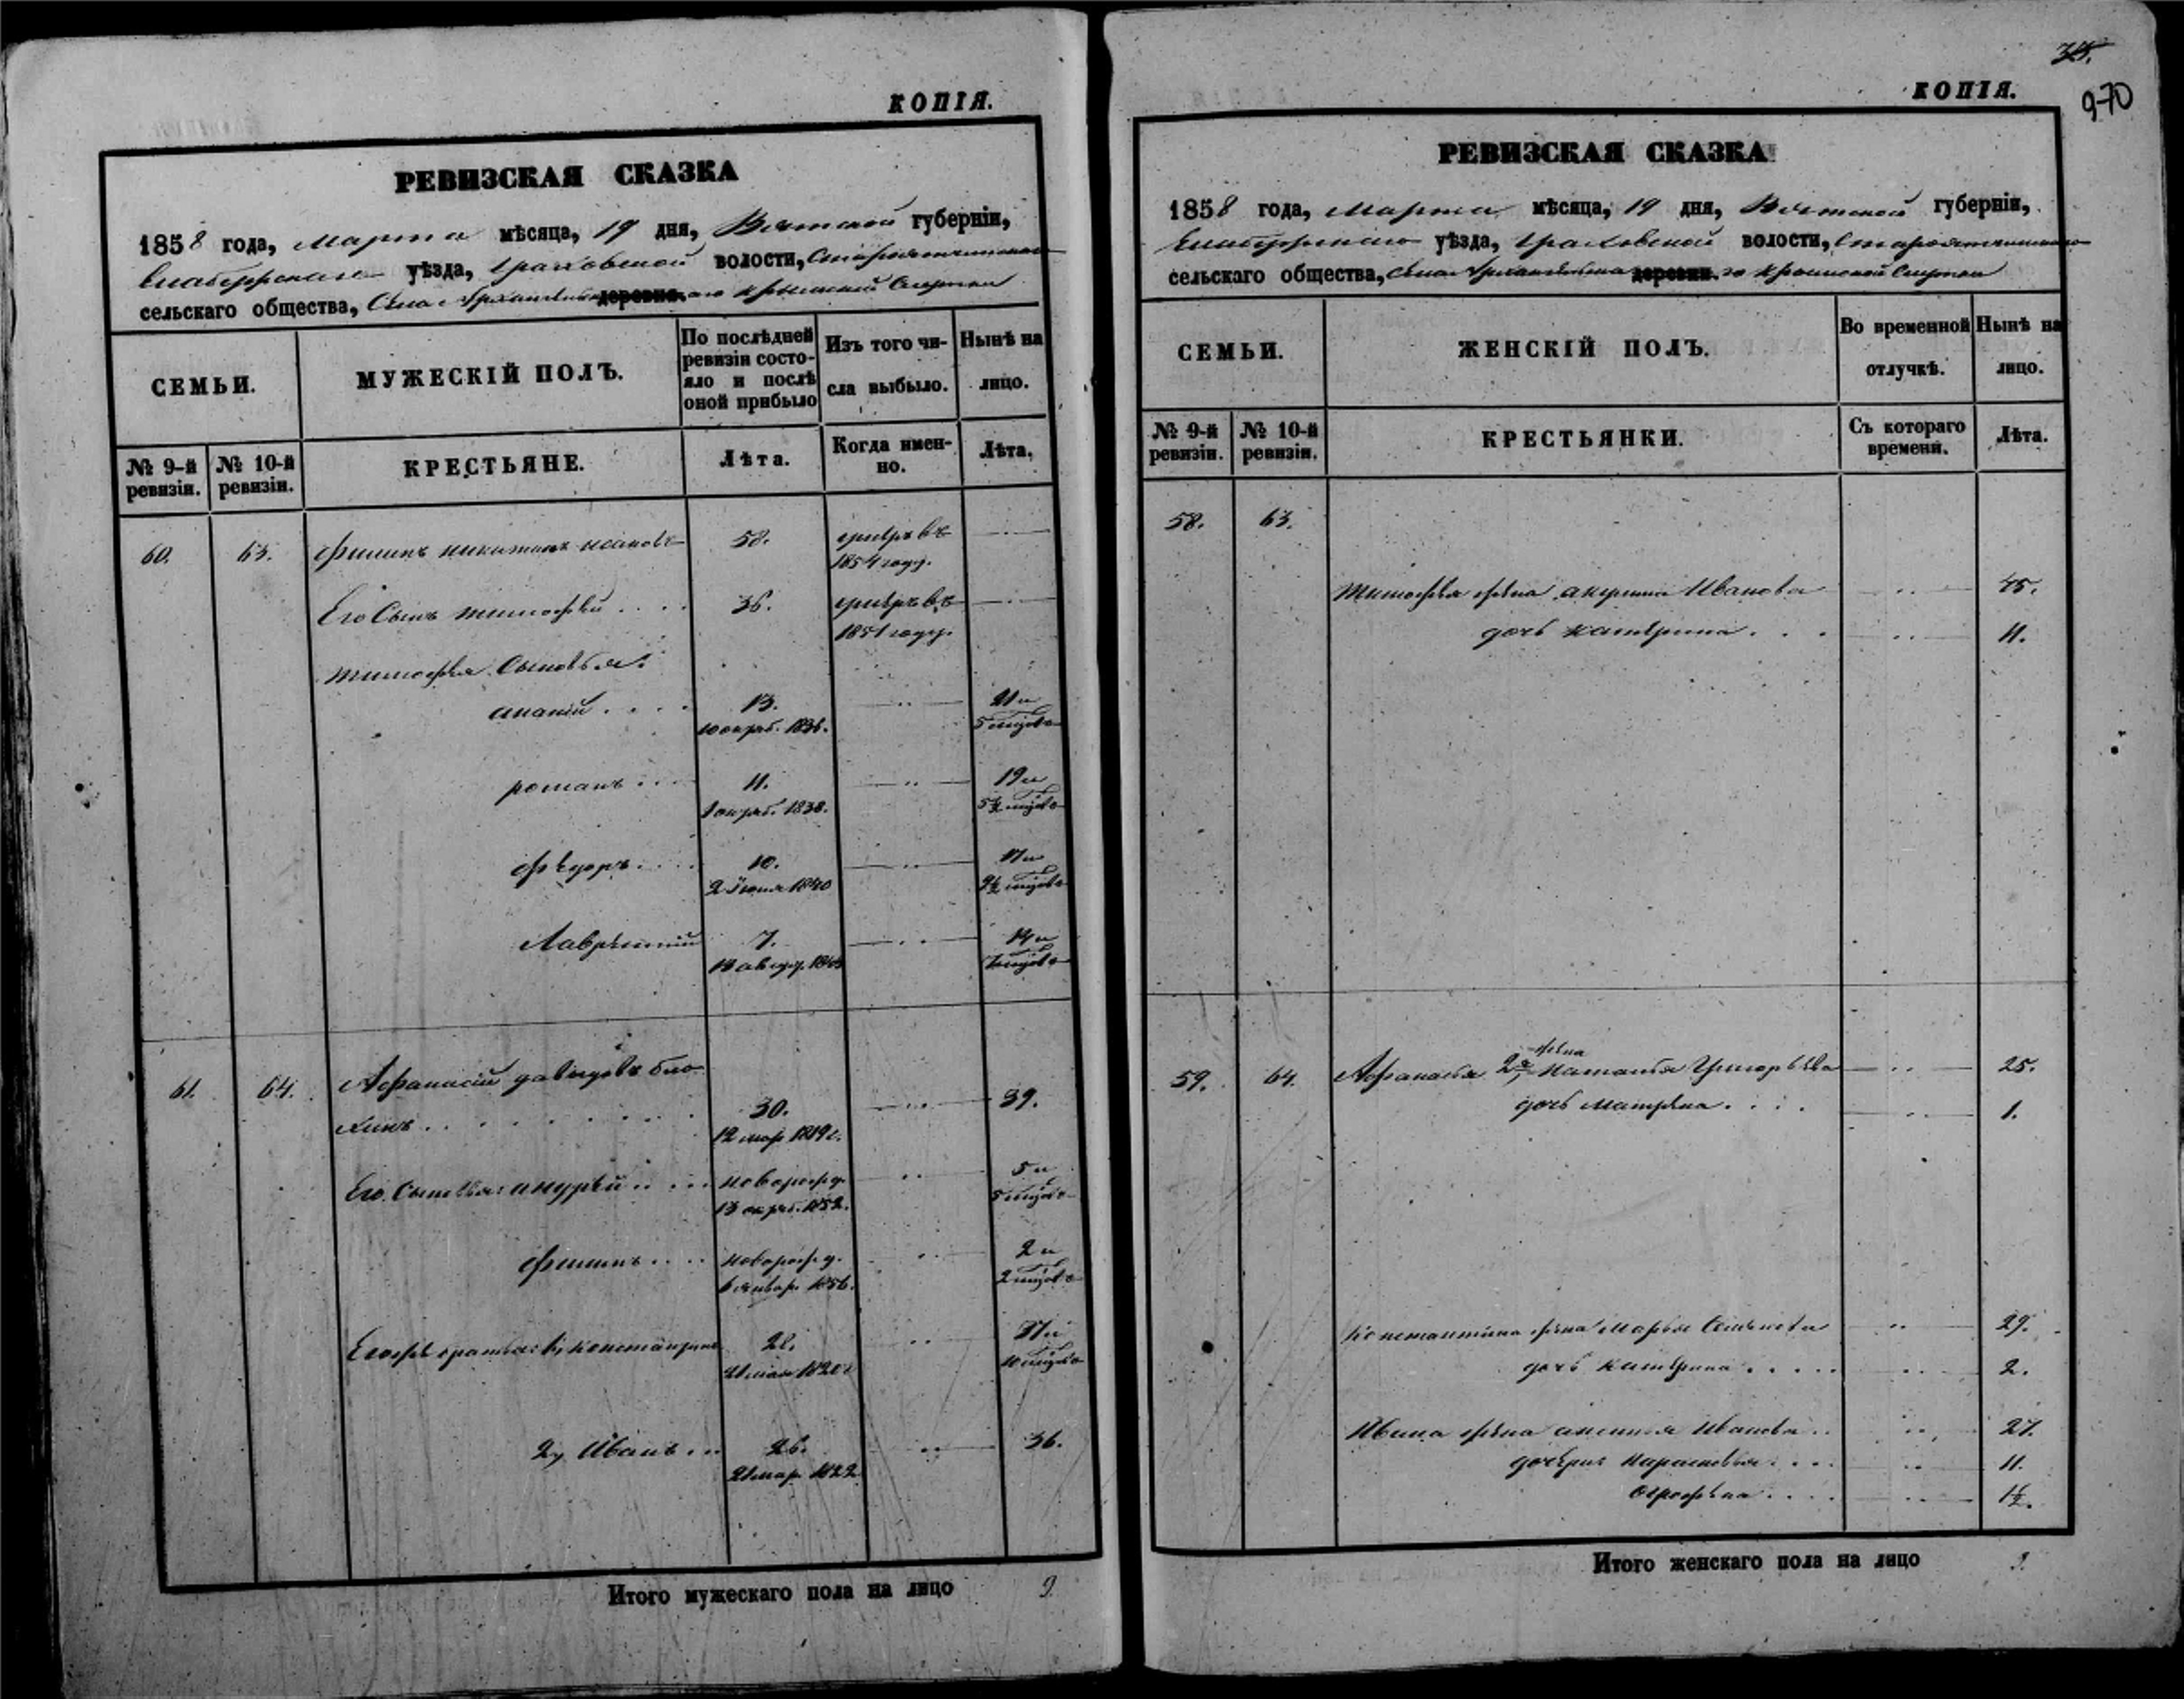 КОПІЯ.
РЕВИЗСКАЯ СКАЗКА
1858 года, Марта мѣсяца, 19 дня, Вятской губерніи,
Елабужскаго уѣзда, Граховской волости,
сельскаго общества, Села деревни.
СЕМЬИ.
МУЖЕСКІЙ ПОЛЪ.
По послѣдней ревизіи состо-
яло и послѣ
оной прибыло
Изъ того чи-
сла выбыло.
Нынѣ на
лицо.
№ 9-й
ревизіи.
№ 10-й
ревизіи.
КРЕСТЬЯНЕ.
Лѣта.
Когда имен-
но.
Лѣта.
60. 63. Филипъ никитинъ 58. умеръ въ
1854 году.
Его Сынъ тимофей . . . . 36. умеръ въ
1851 году.
тимофея Сыновья:
ананій . . . . 13. 21 и
10 октяб. 1836. 5 месяцовъ
романъ . . . . 11. 19 и
1 октяб. 1838. 5½ месяцовъ
Федоръ . . . . 10. 17 и
2 Іюня 1840 9½ месяцовъ
Лаврентій 7. 14 и
авгус. 1843 7 месяцовъ
61. 64. Афанасій давыдовъ
30. 39.
12 мар. 1819 г.
Его Сыновья: андрей . . . . новорожд. 5 и
13 октяб. 1852. 5 месяцовъ
Филипъ . . . . новорожд. 2 и
6 январ. 1856. 2 месяцовъ
Егожъ братья: 1, константинъ 28. 37 и
21 мая 1820 г. 10 месяцовъ
2, Иванъ . . . 26. 36.
21 мар. 1822
Итого мужескаго пола на лицо 9.
35.
970
КОПІЯ.
РЕВИЗСКАЯ СКАЗКА
1858 года, Марта мѣсяца, 19 дня, Вятской губерніи,
Елабужскаго уѣзда, Граховской волости,
сельскаго общества, Села деревни.
СЕМЬИ.
ЖЕНСКІЙ ПОЛЪ.
Во временной
отлучкѣ.
Нынѣ на
лицо.
№ 9-й
ревизіи.
№ 10-й
ревизіи.
КРЕСТЬЯНКИ.
Съ котораго
времени.
Лѣта.
58. 63.
тимофея жена акулина Иванова 45.
дочь катерина . . . 11.
59. 64. Афанасья 2я, жена наталья Григорьева 25.
дочь матрена . . . . 1.
константина жена Марья Семенова 29.
дочь катерина . . . . . 2.
Ивана жена аксинья Иванова . . 27.
дочери Парасковья . . . 11.
Огрофена . . . . 1½.
Итого женскаго пола на лицо 9.